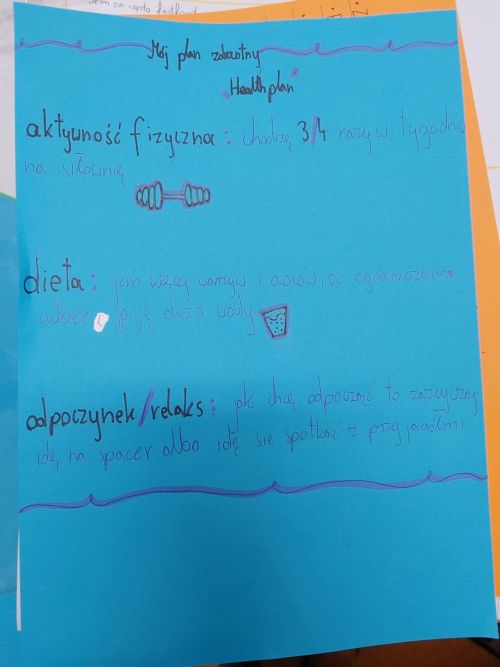 Jem za często fastfood
Mój plan zdrowotny
„Health plan”
aktywność fizyczna: chodzę 3/4 razy w tygodniu
na siłownię
dieta: jem więcej warzyw i owoców, a ograniczam
cukier i piję dużo wody
odpoczynek/relaks: jak chcę odpocząć to zazwyczaj
idę na spacer albo idę sie spotkać z przyjaciółmi